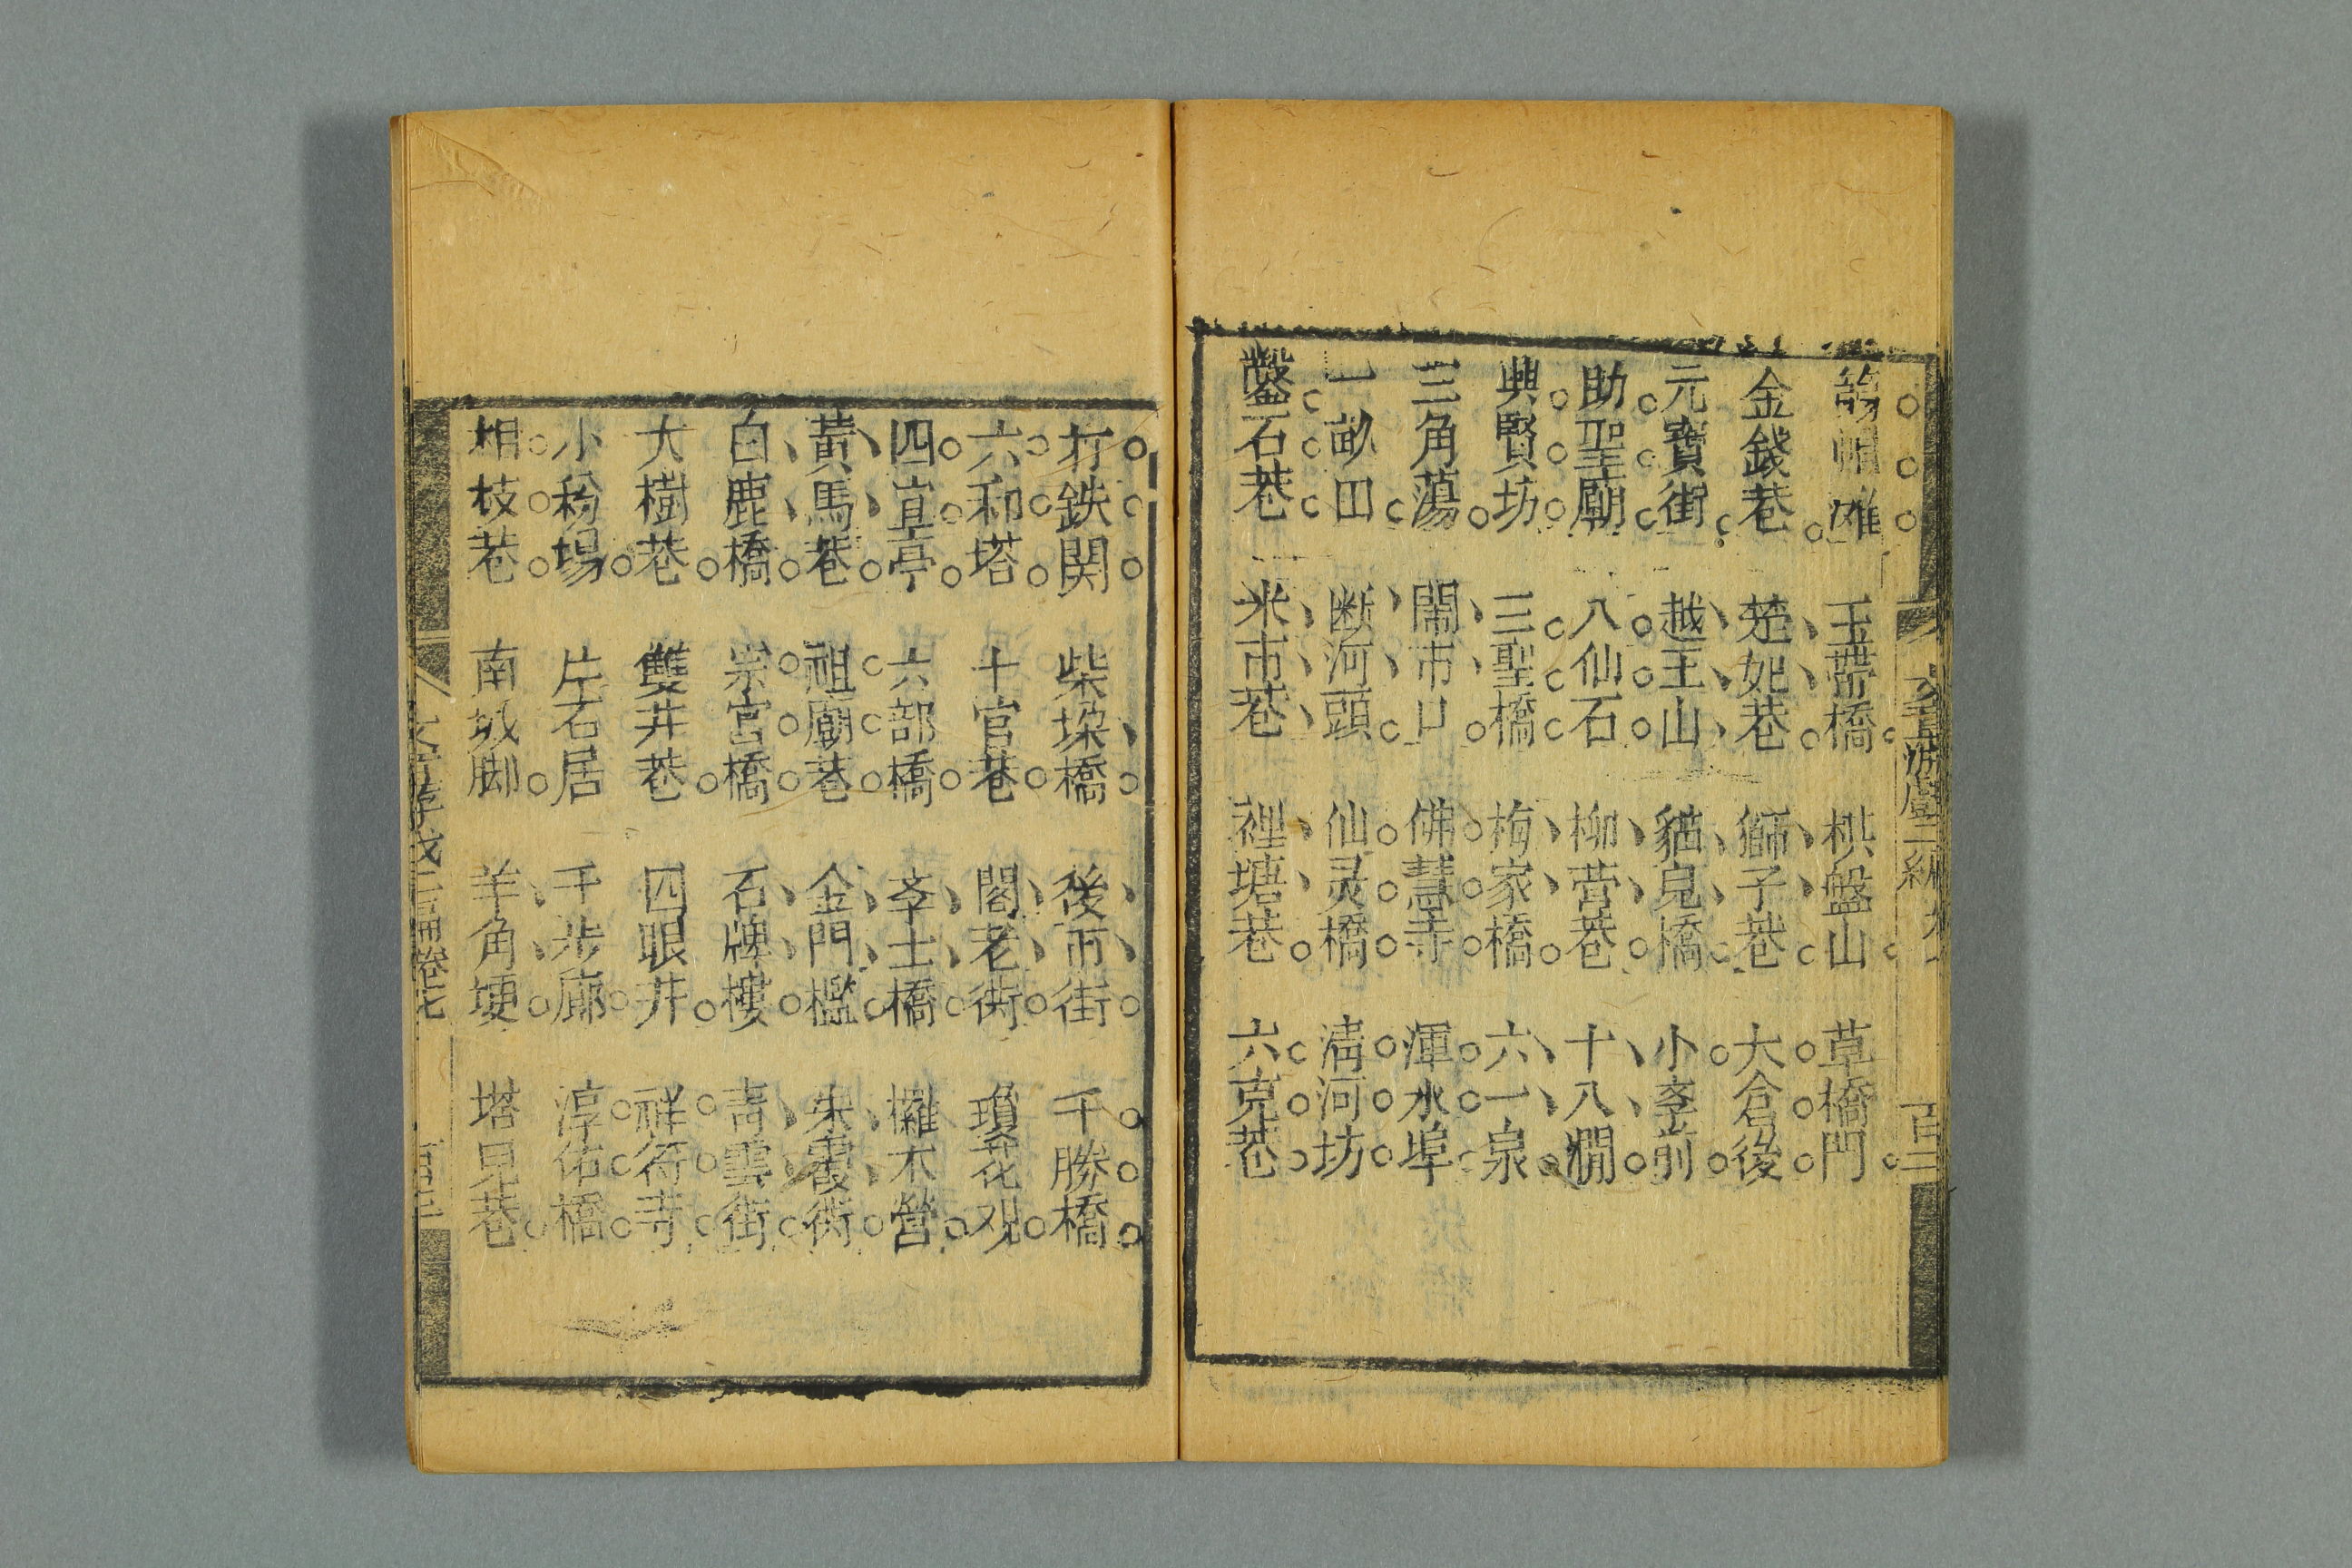 玉帶橋 棋盤山 草橋門
金錢巷 楚妃巷 獅子巷 大倉後
元寶街 越王山 貓兒橋 小斈前
助聖廟 八仙石 柳营巷 十八澗
興賢坊 三聖橋 梅家橋 六一泉
三角蕩 閙市口 佛慧寺 渾水埠
一畝田 断河頭 仙灵橋 清河坊
鑿石巷 米市巷 裡塘巷 六克巷
打鉄関 柴垜橋 後市街 千勝橋
六和塔 十官巷 閣老街 瓊花观
四宜亭 六部橋 斈士橋 木營
黃馬巷 祖廟巷 金門檻 朱霞街
白鹿橋 宗宫橋 石牌樓 青雲街
大樹巷 雙井巷 四眼井 祥符寺
小粉場 片石居 千步廊 淳佑橋
相枝巷 南城脚 羊角埂 塔児巷
文章游戲二編卷七